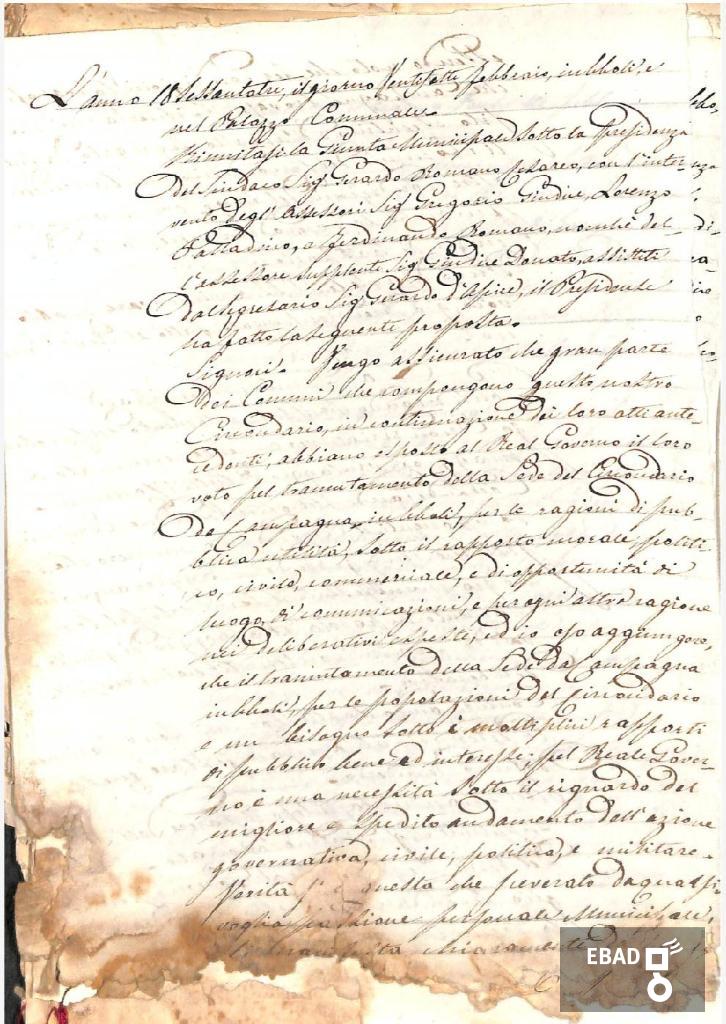 L'anno 18 Sessantatre, il giorno Ventisette febbraio, in Eboli, e
nel Palazzo Comunale.
Riunitasi la Giunta Municipale sotto la Presidenza
del Sindaco Sig. Gerardo Romano Cesareo, con l'inter-
vento degl'Assessori Sig. Gregorio Giudice, Lorenzo
Paladino, e Ferdinando Romano, nonchè del-
l'assessore supplente Sig. Giudice Donato, assistiti
dal Segretario Sig. Gerardo d'Aspice, il Presidente
ha fatto la seguente proposta.
Signori. Vengo assicurato che gran parte
dei Comuni che compongono questo nostro
Circondario, in continuazione dei loro atti ante-
cedenti, abbiano esposto al Real Governo il loro
voto pel tramutamento della Sede del Circondario
da Campagna, in Eboli, per le ragioni di pub-
blica utilità, sotto il rapporto morale, politi-
co, civile, commerciale, e di opportunità di
luogo, di comunicazioni, e per ogni altra ragione
nei deliberativi espressi, ed io oso aggiungere,
che il tramutamento della Sede da Campagna
in Eboli, per le popolazioni del Circondario
è un bisogno sotto i moltiplici rapporti
di pubblico bene ed interesse; pel Reale Gover-
no è una necessità sotto il riguardo del
migliore e spedito andamento dell'azione
governativa, civile, politica, e militare.
Verità è questa che sceverato da qualsi
voglia passione personale Municipale,
chiaramente
EBAD